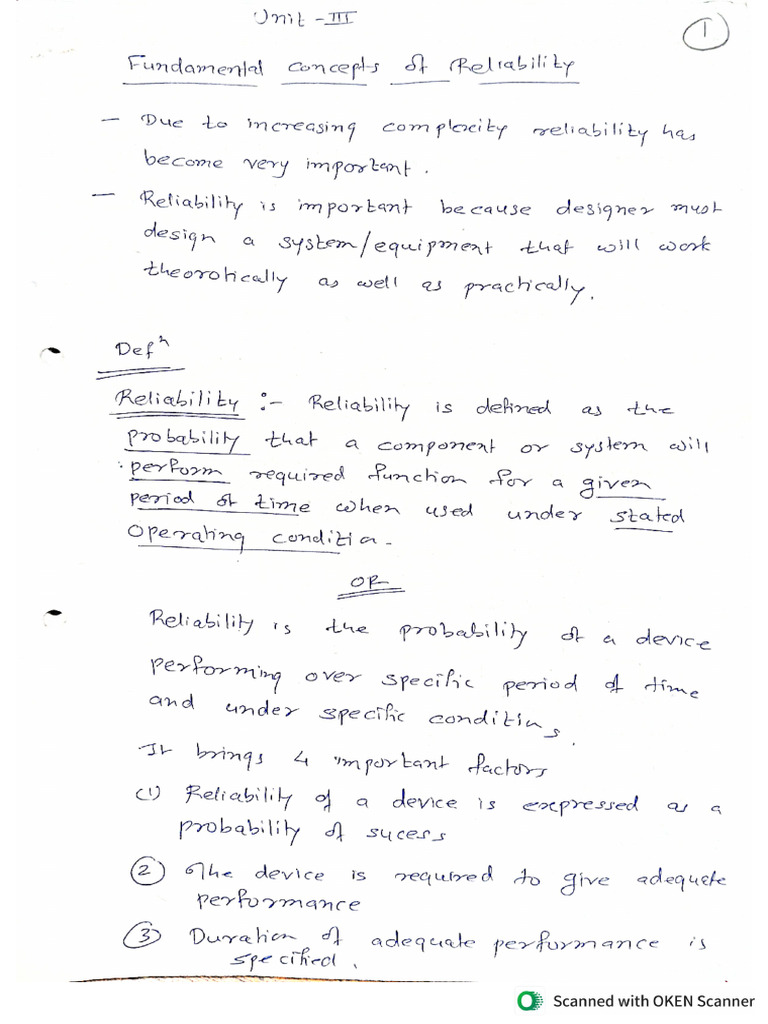 Unit - III
1
Fundamental concepts of Reliability
- Due to increasing complexity reliability has
become very important.
- Reliability is important because designer must
design a system/equipment that will work
theorotically as well as practically.
Defn
Reliability :- Reliability is defined as the
probability that a component or system will
perform required function for a given
period of time when used under stated
operating condition.
OR
Reliability is the probability of a device
performing over specific period of time
and under specific conditions.
It brings 4 important factors
(1) Reliability of a device is expressed as a
probability of sucess
(2) The device is required to give adequate
performance
(3) Duration of adequate performance is
specified.
Scanned with OKEN Scanner